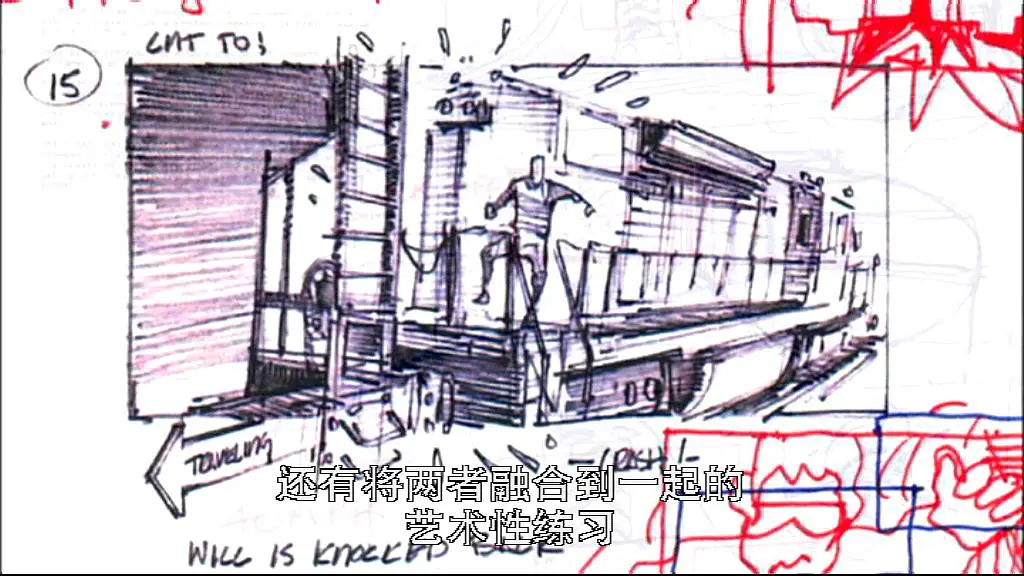 CUT TO:
15
TRAVELING
CRASH!
还有将两者融合到一起的
艺术性练习
WILL IS KNOCKED BACK